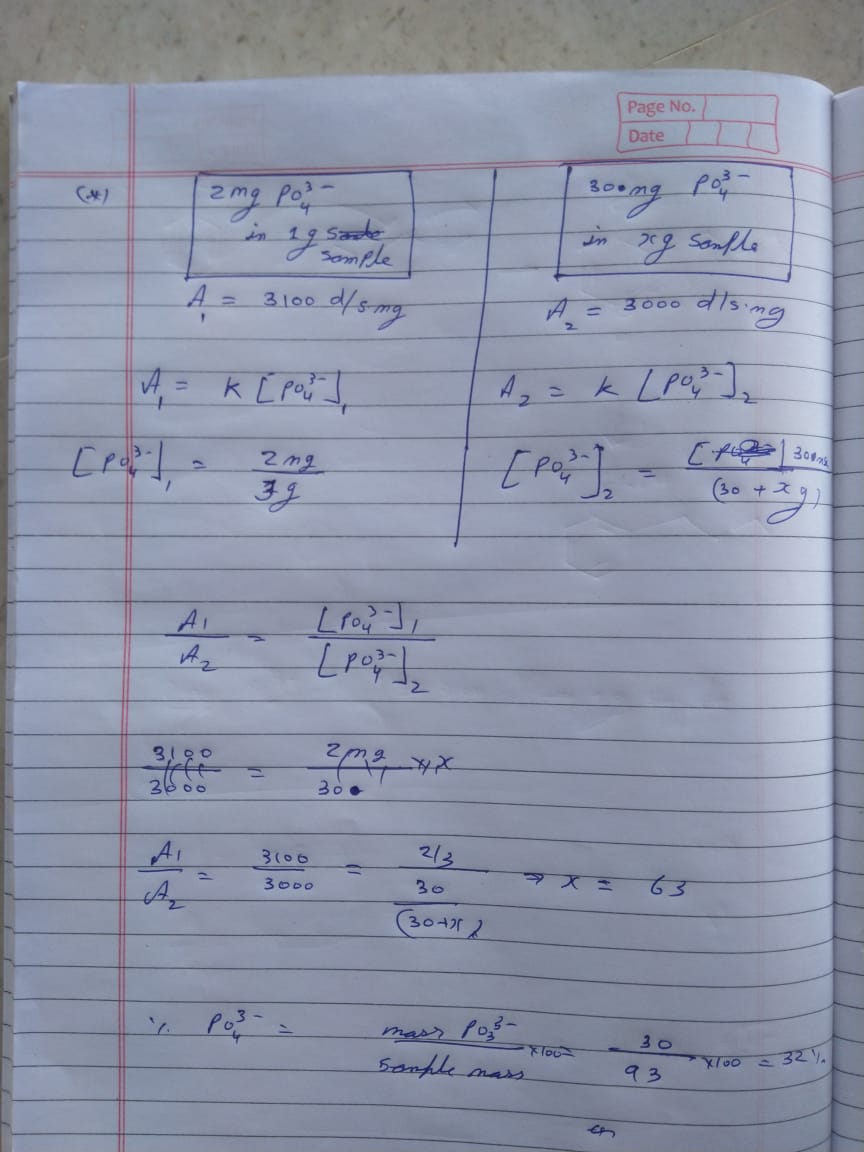 Page No.
Date
(*)
2 mg PO₄³⁻
in 1g
sample
A₁ = 3100 d/s.mg
A₁ = K [PO₄³⁻]₁
[PO₄³⁻]₁ = 2 mg / 3 g
30 mg PO₄³⁻
in xg sample
A₂ = 3000 d/s.mg
A₂ = K [PO₄³⁻]₂
[PO₄³⁻]₂ = 30 mg / (30 + x g)
A₁ / A₂ = [PO₄³⁻]₁ / [PO₄³⁻]₂
3100 / 3000 = 2 mg / 30 × x
A₁ / A₂ = 3100 / 3000 = 2/3 / 30 / (30+x) ⇒ x = 63
% PO₄³⁻ = mass PO₃³⁻ / sample mass ×100 = 30 / 93 ×100 = 32 %